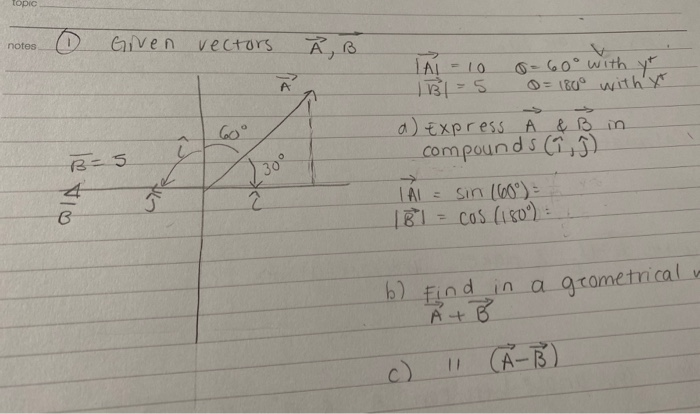 topic
notes
① Given vectors A, B
|A| = 10 θ = 60° with y+
|B| = 5 θ = 180° with x+
A
60°
i
30°
B = 5
B
j
i
a) Express A & B in
compounds (î, ĵ)
|A| = sin (60°) =
|B| = cos (180°) =
b) Find in a geometrical
A + B
c) 11 (A - B)